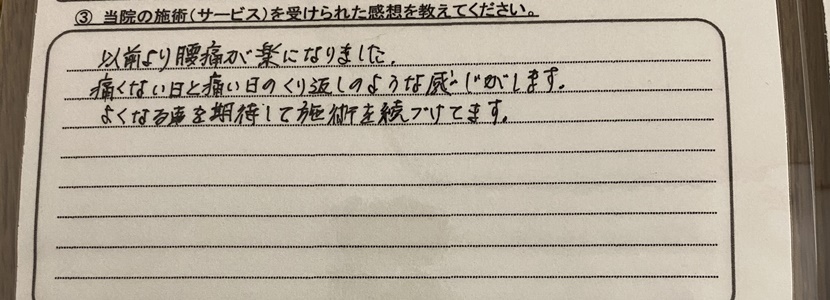 ③ 当院の施術(サービス)を受けられた感想を教えてください。
以前より腰痛が楽になりました。
痛くない日と痛い日のくり返しのような感じがします。
よくなる事を期待して施術を続づけてます。